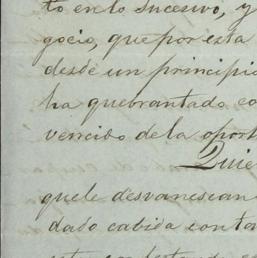 to en lo sucesivo, y
gocio, que por esta
desde un principio
ha quebrantado co
vencido de la oport
Quie
que le desvanescan
dado cabida con tan